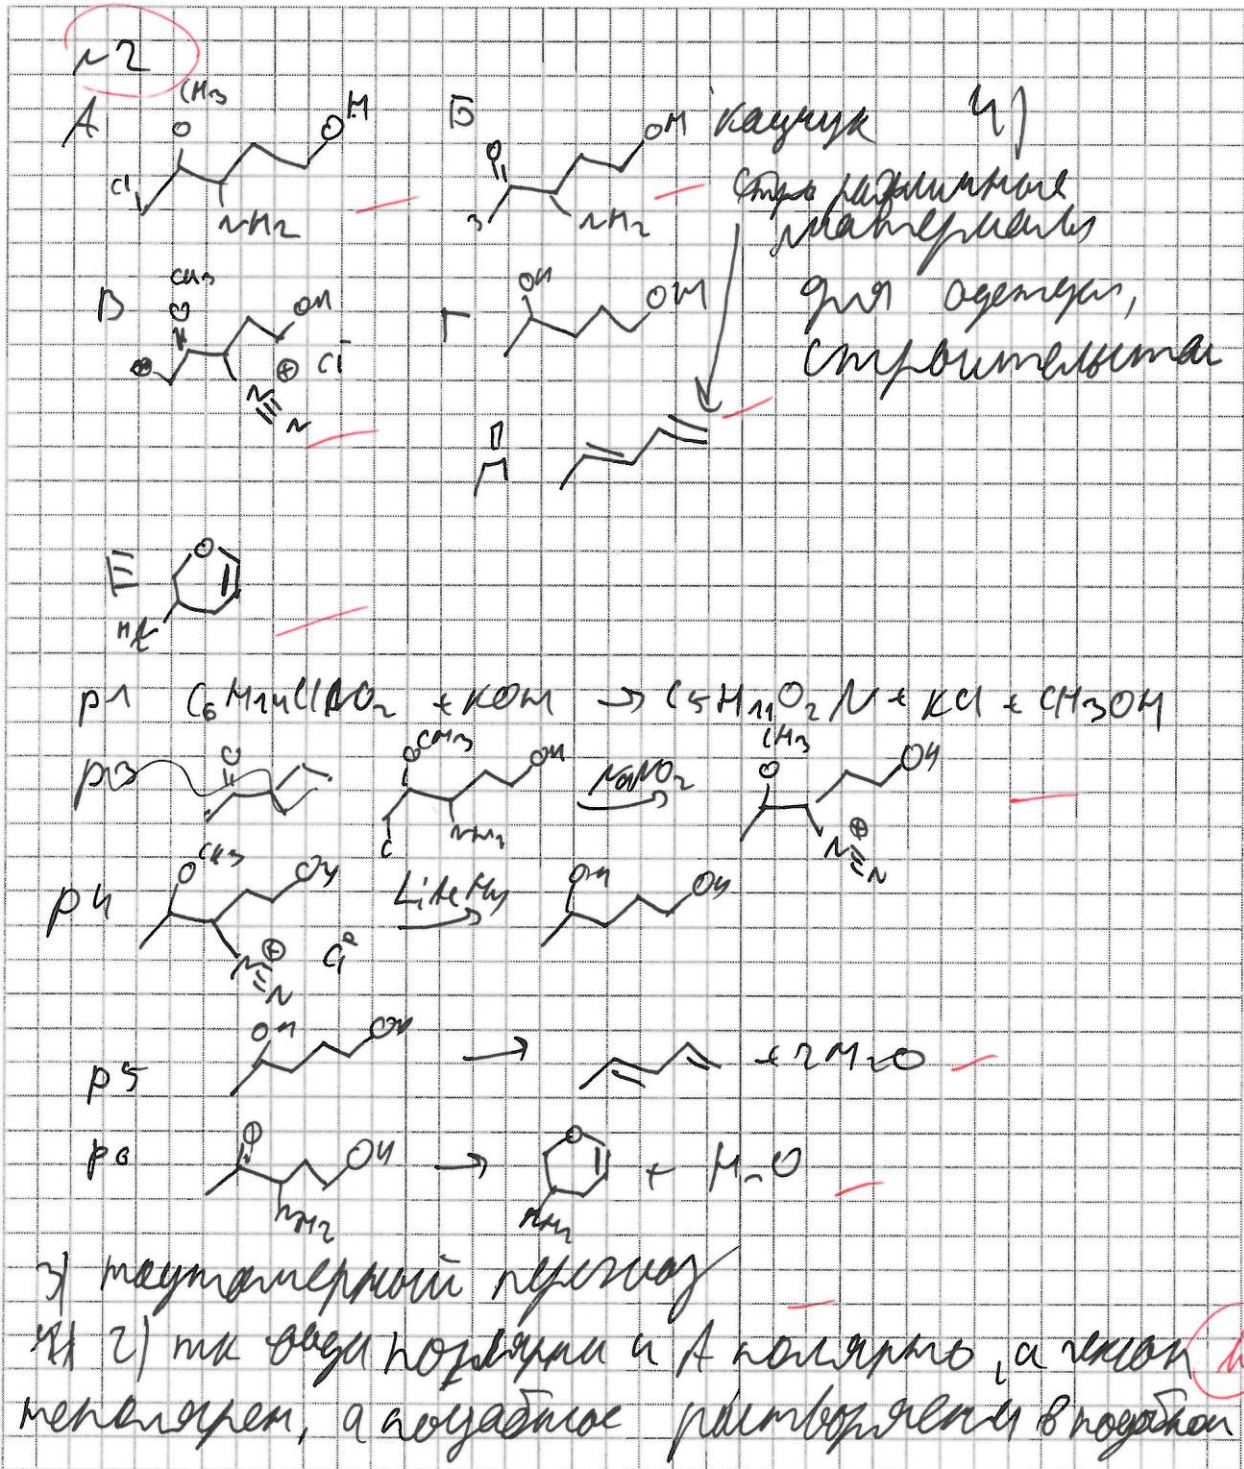 №2
А
Б
каучук
4)
различные
материалы
для одежды,
строительства
CH3
O
OH
Cl
NH2
O
OH
NH2
В
CH3
O
OH
⊕
Cl⁻
N≡N
Г
OH
OH
Д
Е
O
H2N
р1 C6H14ClNO2 + KOH → C5H11O2N + KCl + CH3OH
р3
OCH3
OH
NH2
NaNO2
CH3
O
OH
⊕
N≡N
р4
OCH3
OH
⊕
N≡N
OH
OH
р5
OH
OH
→
+ 2H2O
р6
O
OH
NH2
→
O
NH2
+ H2O
3) таутомерный переход
2) тк вода полярна и А полярно, а гексан
неполярен, а подобное растворяется в подобном